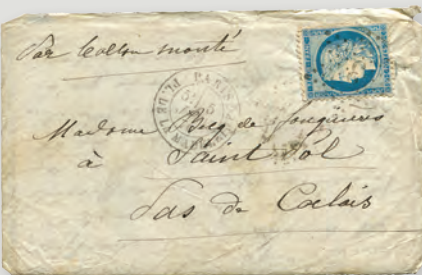 Par ballon monté
PARIS
Madame Bicq de Fouquières
à Saint Pol
Pas de Calais